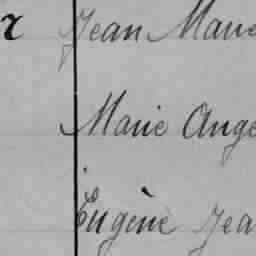 Jean Marie
Marie Ange
Eugène Jea